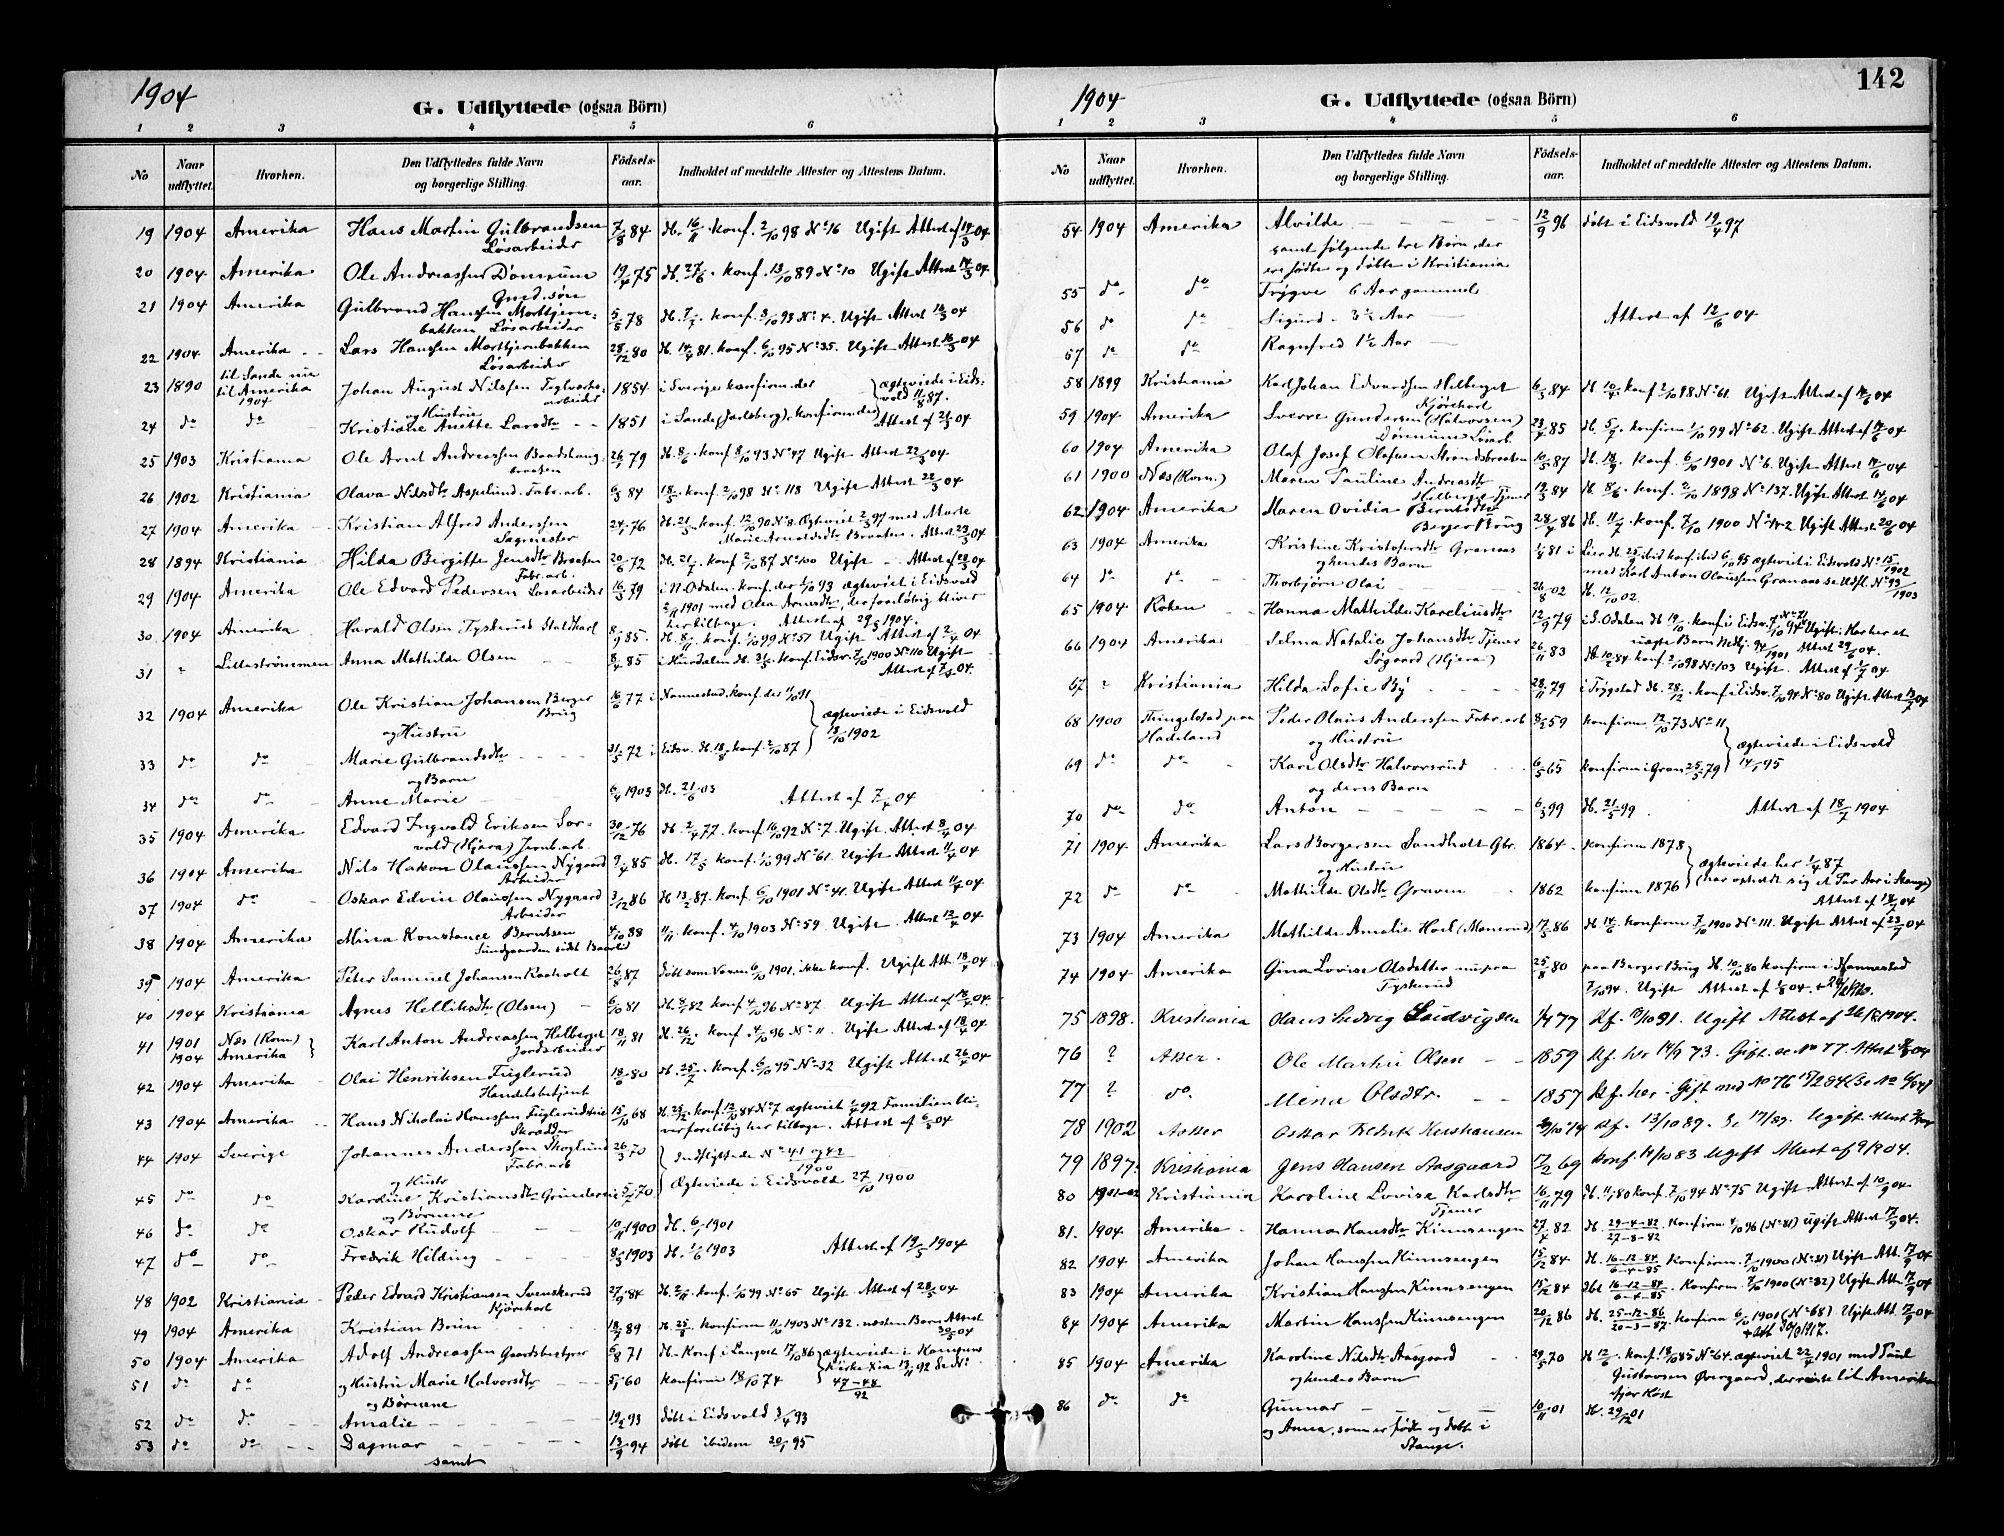 1904
G. Udflyttede (ogsaa Börn)
1 2 3 4 5 6
No Naar udflyttet. Hvorhen. Den Udflyttedes fulde Navn og borgerlige Stilling. Födselsaar. Indholdet af meddelte Attester og Attestens Datum.
19 1904 Amerika Hans Martin Gulbrandsen 7/8 84 db. 16/11. konf. 2/10 98 No 16 Ugift Attest af 14/3 04
Løsarbeider
20 1904 Amerika Ole Andreassen Dønnum 19/4 75 db. 27/6. konf. 13/10 89 No 10 Ugift Attest 14/3 04
Gmd. søn
21 1904 Amerika Gulbrand Hanssen Morttjern- 5/5 78 db. 7/7. konf. 8/10 93 No 4. Ugift Attest 16/3 04
bakken Løsarbeider
22 1904 Amerika Lars Hanssen Morttjernbakken 28/12 80 db. 14/4 81. konf. 6/10 95 No 35. Ugift Attest 16/3 04
Løsarbeider
til Sande nu
23 1890 til Amerika Johan August Nilssen Teglverks- 1854 i Sverige konfirm. der ægteviede i Eids-
1904 arbeider vold 11/8 87.
og Hustru
24 do do Kristiane Anette Larsdtr 1851 i Sande (Jarlsberg), konfirm. der Attest af 21/3 04
25 1903 Kristiania Ole Arnt Andreassen Baadshaug- 26/7 79 db. 8/6. konf 8/10 93 No 47 Ugift Attest 22/3 04
braaten
26 1902 Kristiania Olava Nilsdtr Asplund. Fabr. arb. 6/3 84 18/5. konf. 2/10 98 No 118 Ugift Attest 22/3 04
27 1904 Amerika Kristian Alfred Anderssen 24/1 76 db. 21/5 konf. 12/10 90 No 8. Ægteviet 2/3 97 med Marte
Sagmester Marie Arnoldsdtr Braaten. Attest 23/3 04
28 1894 Kristiania Hilda Birgitte Jensdtr Braaten 20/6 72 db. 21/7. konf 2/10 87 No 100 Ugift Attest af 28/3 04
Fabr. arb.
29 1904 Amerika Ole Edvard Pedersen Løsarbeider 16/3 79 i N. Odalen. konf. der 1/10 93 ægteviet i Eidsvold
2/11 1901 med Olea Arnesdtr, der foreløbig bliver
her tilbage. Attest af 29/3 1904.
30 1904 Amerika Harald Olsen Tyskerud Staldkarl 8/9 85. db. 8/11. konf. 1/10 99 No 57 Ugift Attest af 2/4 04
31 " Lillestrømmen Anna Mathilde Olsen 8/4 85 i Hurdalen db. 31/5. konf. Eidsv. 7/10 1900 No 110 Ugift
Attest af 7/4 04.
32 1904 Amerika Ole Kristian Johansen Berger 16/6 77 i Nannestad. konf. der 11/10 91
Brug ægteviede i Eidsvold
og Hustru 18/10 1902
33 do do Marie Gulbrandsdtr 31/5 72 i Eidsv. db. 18/8. konf. 2/10 87
og Barn
34 do do Anne Marie 6/4 1903 db. 21/6 03 Attest af 7/4 04
35 1904 Amerika Edvard Ingvald Eriksen Sor- 30/12 76 db. 2/4 77. konf. 16/10 92 No 7. Ugift. Attest 8/4 04
vold (Hjera) Jernb. arb.
36 1904 Amerika Nils Hakon Olaussen Nygaard 9/4 85 db. 17/5. konf. 1/10 99 No 61. Ugift Attest 11/4 04
Arbeider
37 1904 do Oskar Edvin Olaussen Nygaard 3/12 86 db 13/2 87. konf. 6/10 1901 No 41. Ugift Attest 11/4 04
Arbeider
38 1904 Amerika Mina Konstance Berntsen 4/10 88 11/11. konf. 4/10 1903 No 59 Ugift. Attest 13/4 04
Sundgaarden
39 1904 Amerika Peter Samuel Johansen Raaholt 26/8 87 døbt som Voxen 6/10 1901, ikke konf. Ugift Att. 18/4 04
40 1904 Kristiania Agnes Helliksdtr (Olsen) 6/10 81 db. 8/1 82 konf. 4/10 96 No 87 Ugift Attest af 14/4 04.
41 1901 Nes (Rom.) Karl Anton Andreassen Helberget 18/11 81 db. 26/12. konf. 4/10 96 No 11. Ugift Attest af 18/4 04.
1904 Amerika Jordarbeider
42 1904 Amerika Olai Henriksen Fuglerud 18/6 80 db. 25/7. konf. 6/10 95 No 32 Ugift Attest 26/4 04
Handelsbetjent
43 1904 Amerika Hans Nikolai Hanssen Fuglerudeie 15/10 68 db. 29/12. konf. 12/10 84 No 7 ægteviet 1/4 92 Familien bli-
Skrædder ver foreløbig her tilbage. Attest af 6/5 04
44 1904 Sverige Johannes Anderssen Skoglund 26/3 70 Indflyttede No 41 og 42 / 1900
Fabr. arb
og Hustr
45 do do Karoline Kristiansdtr Grinderen 5/1 70 Ægteviede i Eidsvold 27/10 1900
og Børnene
46 do do Oskar Rudolf 10/11 1900 db. 6/1 1901
47 do do Fredrik Hilding 8/5 1903 db. 1/6 1903 Attest af 19/5 1904
48 1902 Kristiania Peder Edvard Kristiansen Svenskerud 27/9 84 db. 2/11. konf. 1/10 99 No 65 Ugift Attest af 28/5 04
Kjørekarl
49 1904 Amerika Kristian Brun 18/7 89 db. 25/8. konfirm 11/10 1903 No 132. uægten Barn Attest
30/5 04
50 1904 Amerika Adolf Andreassen Gaardsbestyrer 6/8 71 db. Konf i Langset 17/10 86 ægteviede i Kampens
51 do do og Hustru Marie Halvorsdtr 5/1 60 konfirm 18/10 74 Kirke Xia 13/11 92 Se No
og Børnene 47-48 / 92
52 do do Amalie 19/2 93 døbt i Eidsvold 3/4 93
53 do do Dagmar 13/9 94 døbt ibidem 20/1 95
samt
142
1904
G. Udflyttede (ogsaa Börn)
1 2 3 4 5 6
No Naar udflyttet. Hvorhen. Den Udflyttedes fulde Navn og borgerlige Stilling. Födselsaar. Indholdet af meddelte Attester og Attestens Datum.
54 1904 Amerika Alvilde 12/9 96 døbt i Eidsvold 19/4 97
samt følgende tre Børn, der
ere fødte og døbte i Kristiania
55 do do Trygve 6 Aar gammel
56 do do Sigurd 3½ Aar Attest af 12/6 04
57 do do Ragnfred 1½ Aar
58 1899 Kristiania Karl Johan Edvardsen Helberget 6/3 84 db 10/4. konf 2/10 98 No 61. Ugift Attest af 14/6 04
Kjørekarl
59 1904 Amerika Sverre Gundersen (Halvorsen) 22/4 85 db. 5/7. konfirm 1/10 99 No 62. Ugift Attest af 14/6 04
Dønnum Løsarb.
60 1904 Amerika Olaf Josef Olafsen Strandbraaten 10/5 87 db. 19/6. konf. 6/10 1901 No 6. Ugift Attest 14/6 04
61 1900 Nes (Rom.) Maren Pauline Andreasdtr 19/3 84 db. 8/6. konf. 2/10 1898 No 137. Ugift Attest 14/6 04
Helberget Tjener
62 1904 Amerika Maren Ovidia Berntsdtr 28/4 86 db. 11/7. konf. 7/10 1900 Ugift Attest 20/6 04
Berger Brug
63 1904 Amerika Kristine Kristofersdtr Granaas 1/8 81 i Lier db 25/9 ibid konf. ibid 6/10 95 ægteviet i Eidsvold No 15/1902
og hendes Barn med Karl Anton Olaussen Granaas se Udfl. No 93/1903
64 do do Thorbjørn Olai 26/8 02 db. 12/10 02.
65 1904 Røken Hanna Mathilde Kareliusdtr 12/9 79 i S. Odalen db 19/10. konf i Eidsv. 7/10 94 No 71 Ugift. Har her et
uægte Barn Mdkj. 94/1901 Attest 29/6 04.
66 1904 Amerika Selma Natalie Johansdtr Tjener 26/11 83 db 10/2 84 konf. 2/10 98 No 103 Ugift. Attest af 1/7 04
Søgaard (Hjera)
67 " Kristiania Hilda Sofie By 28/11 79 i Trygstad db. 28/12. konf i Eidsv. 7/10 94 No 80 Ugift Attest 13/7 04
68 1900 Tingelstad paa Peder Olaus Anderssen Fabr. arb 8/2 59 konfirm 12/10 73 No 11
Hadeland og Hustru ægteviede i Eidsvold
69 do do Kari Olsdtr Halvorsrud 6/5 65 konfirm i Gran 25/5 79 14/1 95
og deres Barn
70 do do Anton 6/3 99 db. 21/5 99. Attest af 18/7 1904
71 1904 Amerika Lars Borgersen Sandholt Gbr. 1864 konfirm 1878
og Hustru ægteviede her 1/4 87
72 do do Mathilde Olsdtr Graven 1862 konfirm 1876 (har opholdt sig et Par Aar i Stange)
Attest af 19/7 04
73 1904 Amerika Mathilde Amalie Hoel (Monerud) 17/5 86 db. 14/7. konfirm. 7/10 1900 No 111. Ugift Attest af 23/7 04
74 1904 Amerika Gina Lovise Olsdatter nu paa 25/8 80 paa Berger Brug db. 10/10 80 konfirm i Nannestad
Tyskerud 7/10 94. Ugift Attest af 1/8 04.
75 1898. Kristiania Olaus Ludvig Ludvigsen 1/4 77 Kf. 11/10 91. Ugift Attest af 26/8 1904.
76 ? Asker. Ole Martin Olsen 1859 Kf. her 14/9 73. Gift. se No 77. Attest 04
77 ? do. Mina Olsdtr. 1857 Kf. her. Gift med No 76
78 1902 Asker Oskar Fredrik Kristiansen Kf. 13/10 89. Ugift. Attest
79 1897. Kristiania Jens Hansen Aasgaard 17/2 69 konf. 14/10 83 Ugift Attest af 9/9 04.
80 1901-02 Kristiania Karoline Lovise Karlsdtr 16/11 79 db. 11/1 80 konf. 7/10 94 No 75 Ugift Attest af 10/9 04.
Tjener
81. 1904 Amerika Hanna Hansdtr Kinnsengen 27/4 82 db. 29-4-82 / 27-8-82. konfirm 4/10 96 (No 81) Ugift Attest 17/9 04.
82 1904 Amerika Johan Hanssen Kinnsengen 15/12 84 db. 16-12-84 / 6-4-85 konfirm. 7/10 1900 (No 31) Ugift Att. 17/9 04
83 1904 Amerika Kristian Hanssen Kinnsengen 15/12 84 dbt 16-12-84 / 6-4-85. Konfirm. 7/10 1900 (No 32) Ugift Att. 17/9 04
84 1904 Amerika Martin Hanssen Kinnsengen 20/12 86 db. 25-12-86 / 20-3-87. konfirm 6/10 1901 (No 68) Ugift Att. 17/9 04
85 1904 Amerika Karoline Nilsdtr Aasgaard 29/5 70 db 12/6. konf. 18/10 85 No 64. ægteviet 22/4 1901 med Paul
og hendes Barn Gustavsen Overgaard, der reiste til Amerika
ifjor Høst
86 do do Gunnar 10/11 01 db. 29/12 01
og Anna, som er født og døbt i
Stange.